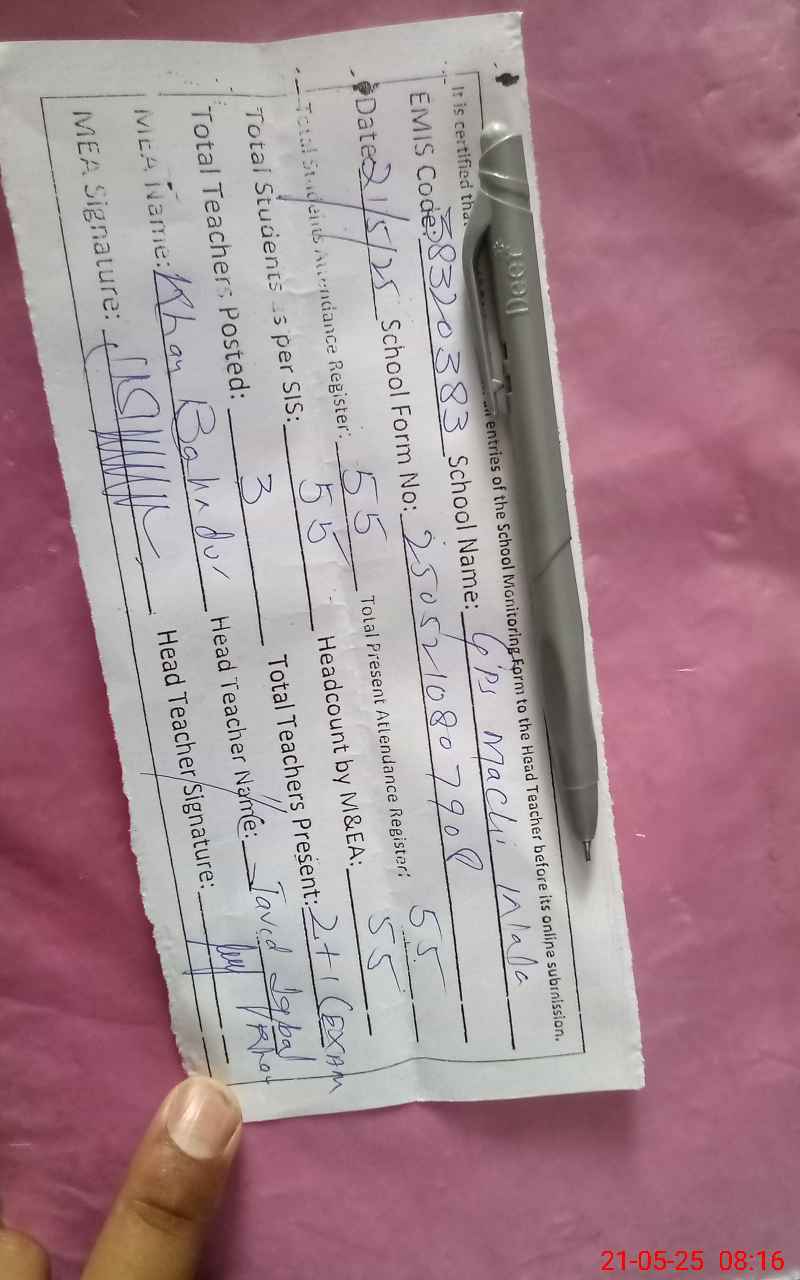 It is certified that entries of the School Monitoring Form to the Head Teacher before its online submission.
EMIS Code: 38320383 School Name: GPS Machi
Date 21/5/25 School Form No: 2505210807908
Total Students Attendance Register: 55 Total Present Attendance Register: 55
Total Students as per SIS: 55 Headcount by M&EA: 55
Total Teachers Posted: 3 Total Teachers Present: 2+1 (EXAM
MEA Name: Khan Bahadur Head Teacher Name: Javed Iqbal Khan
MEA Signature: Head Teacher Signature:
21-05-25 08:16